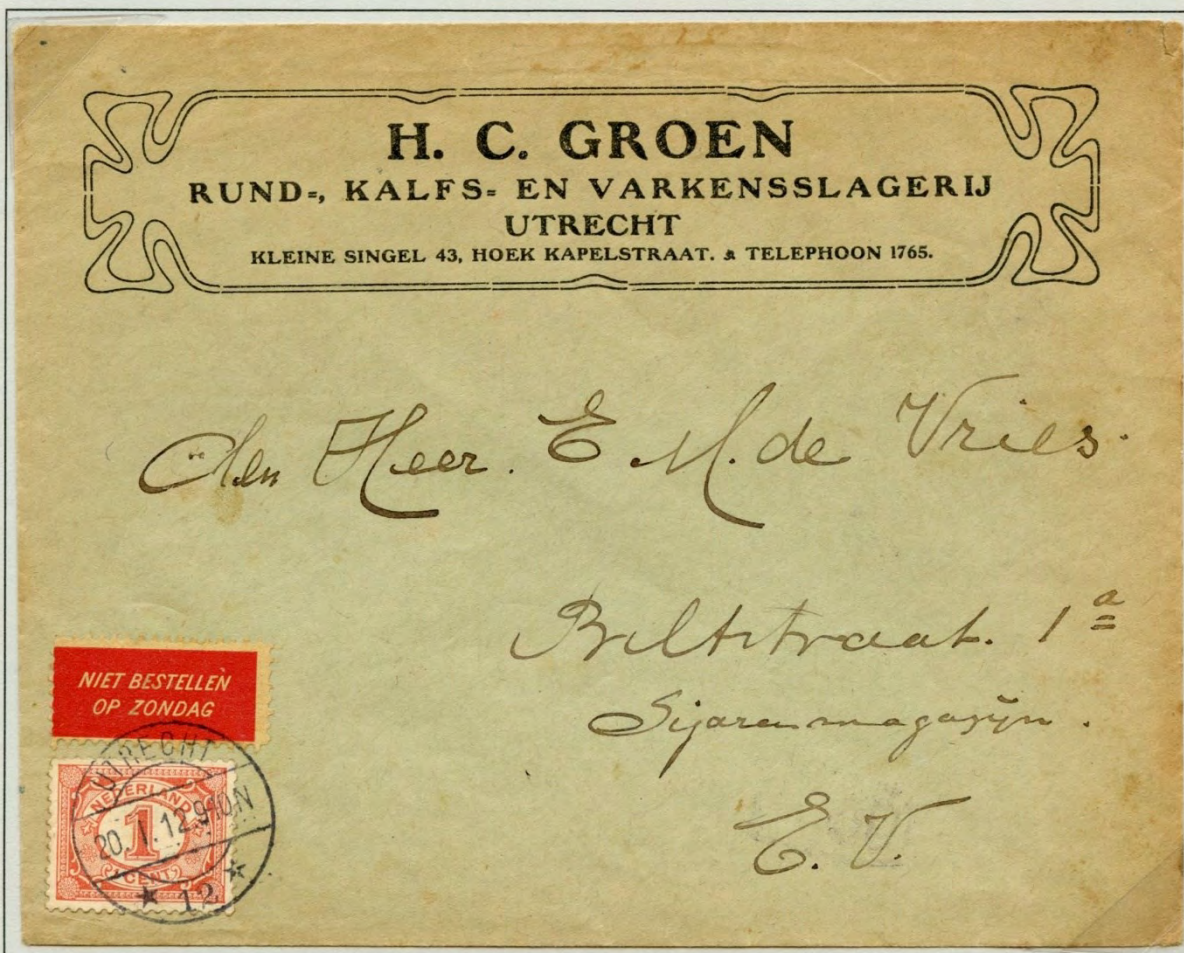 H. C. GROEN
RUND=, KALFS= EN VARKENSSLAGERIJ
UTRECHT
KLEINE SINGEL 43, HOEK KAPELSTRAAT. TELEPHOON 1765.
den Heer. E M. de Vries.
Biltstraat. 1 a
Sijarenmagasijn.
E. V.
NIET BESTELLEN
OP ZONDAG
UTRECHT
20.1.12.9-10N
12
NEDERLAND
1
CENT